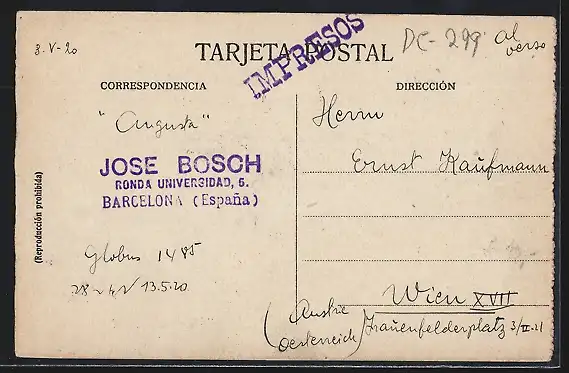 3. V - 20
TARJETA POSTAL
IMPRESOS
DC-299
al
verso
CORRESPONDENCIA
DIRECCIÓN
"Augusta"
Herrn
Ernst Kaufmann
JOSE BOSCH
RONDA UNIVERSIDAD, 6.
BARCELONA (España)
(Reproducción prohibida)
Globus 1485
13.5.20
Wien XVII
(Austria
Oesterreich)
Frauenfelderplatz 3/II-21